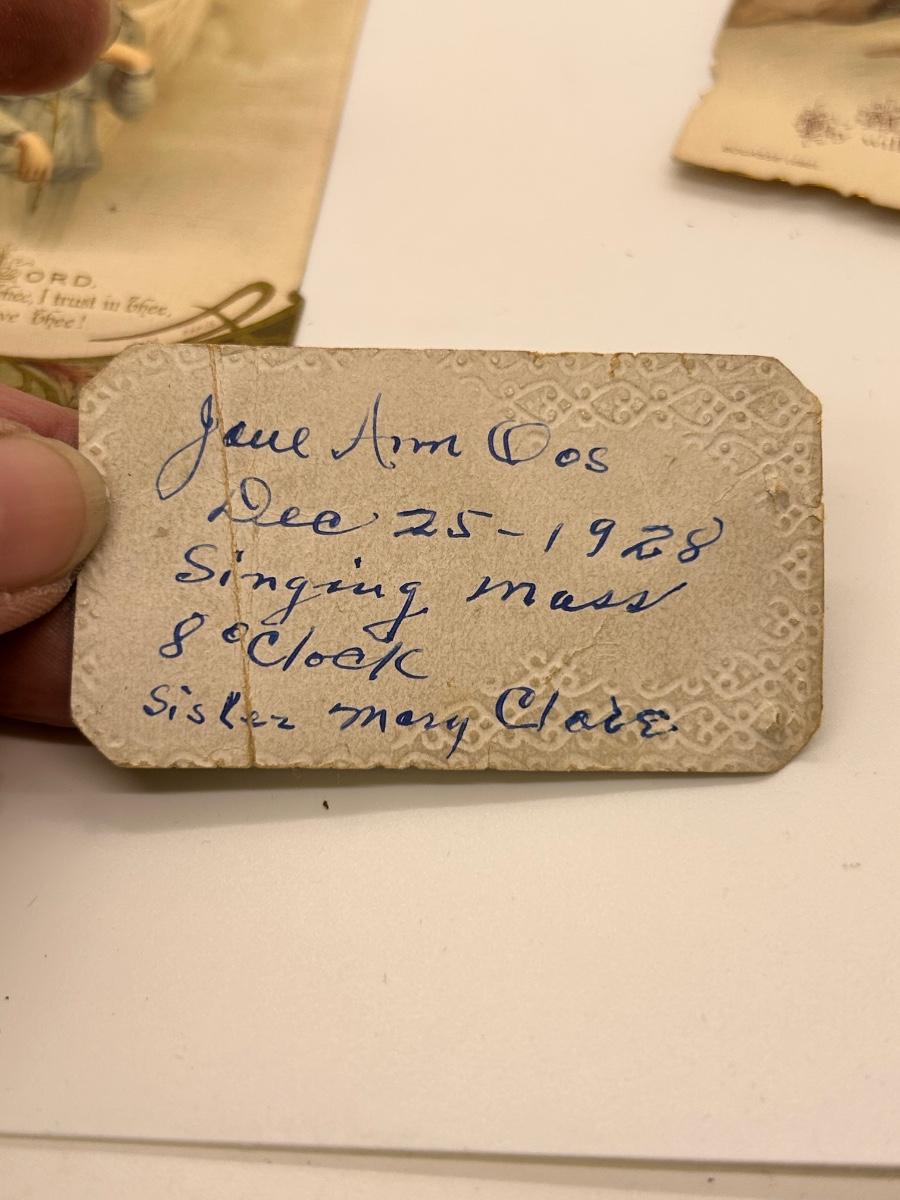 ORD.
Thee, I trust in Thee,
ve Thee!
will
Jane Ann Oos
Dec 25-1928
Singing Mass
8 O'Clock
Sister Mary Claire